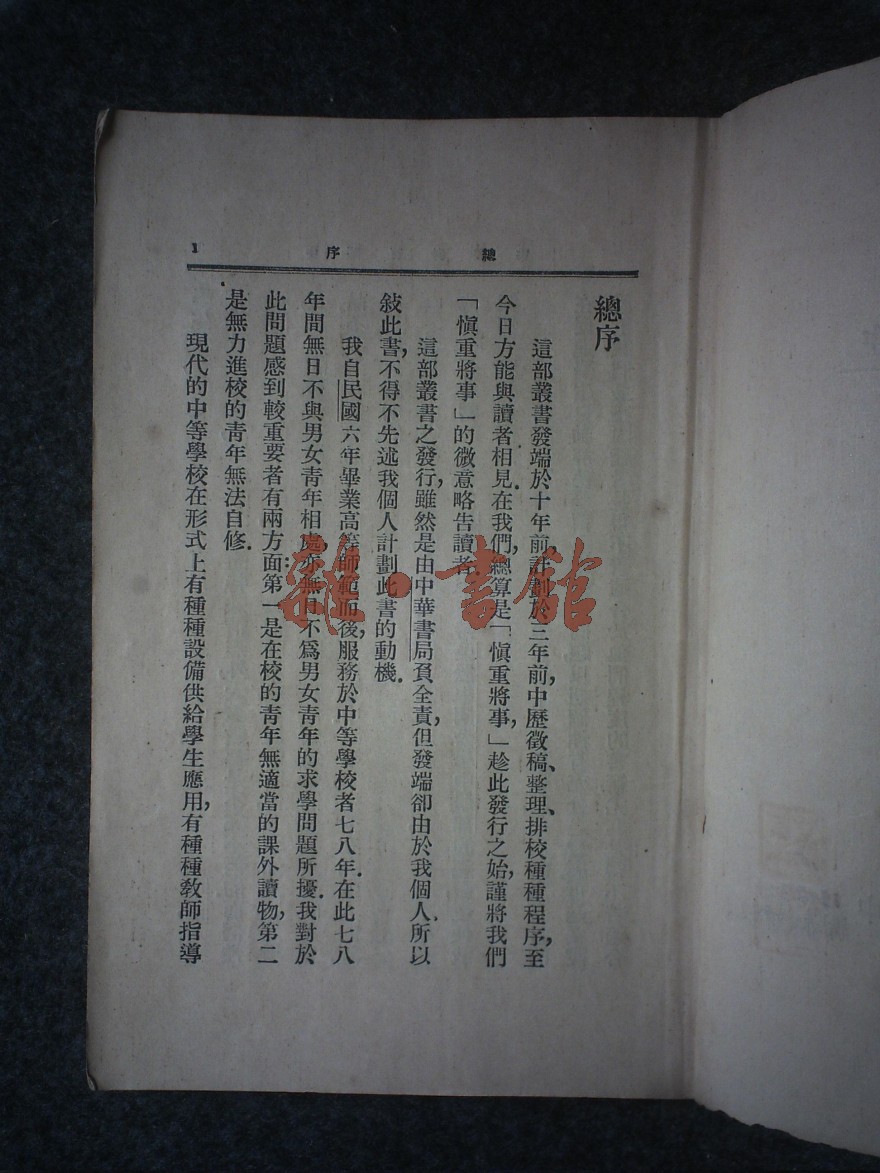 總序
1
總序
這部叢書發端於十年前，計劃於三年前，中歷徵稿、整理、排校種種程序，至
今日方能與讀者相見。在我們，總算是「愼重將事，」趁此發行之始，謹將我們
「愼重將事」的微意略告讀者。
這部叢書之發行，雖然是由中華書局負全責，但發端卻由於我個人，所以
敍此書，不得不先述我個人計劃此書的動機。
我自民國六年畢業高等師範而後，服務於中等學校者七八年。在此七八
年間無日不與男女靑年相處，亦無日不爲男女靑年的求學問題所擾。我對於
此問題感到較重要者有兩方面：第一是在校的靑年無適當的課外讀物，第二
是無力進校的靑年無法自修。
現代的中等學校在形式上有種種設備供給學生應用，有種種敎師指導
雜·書館